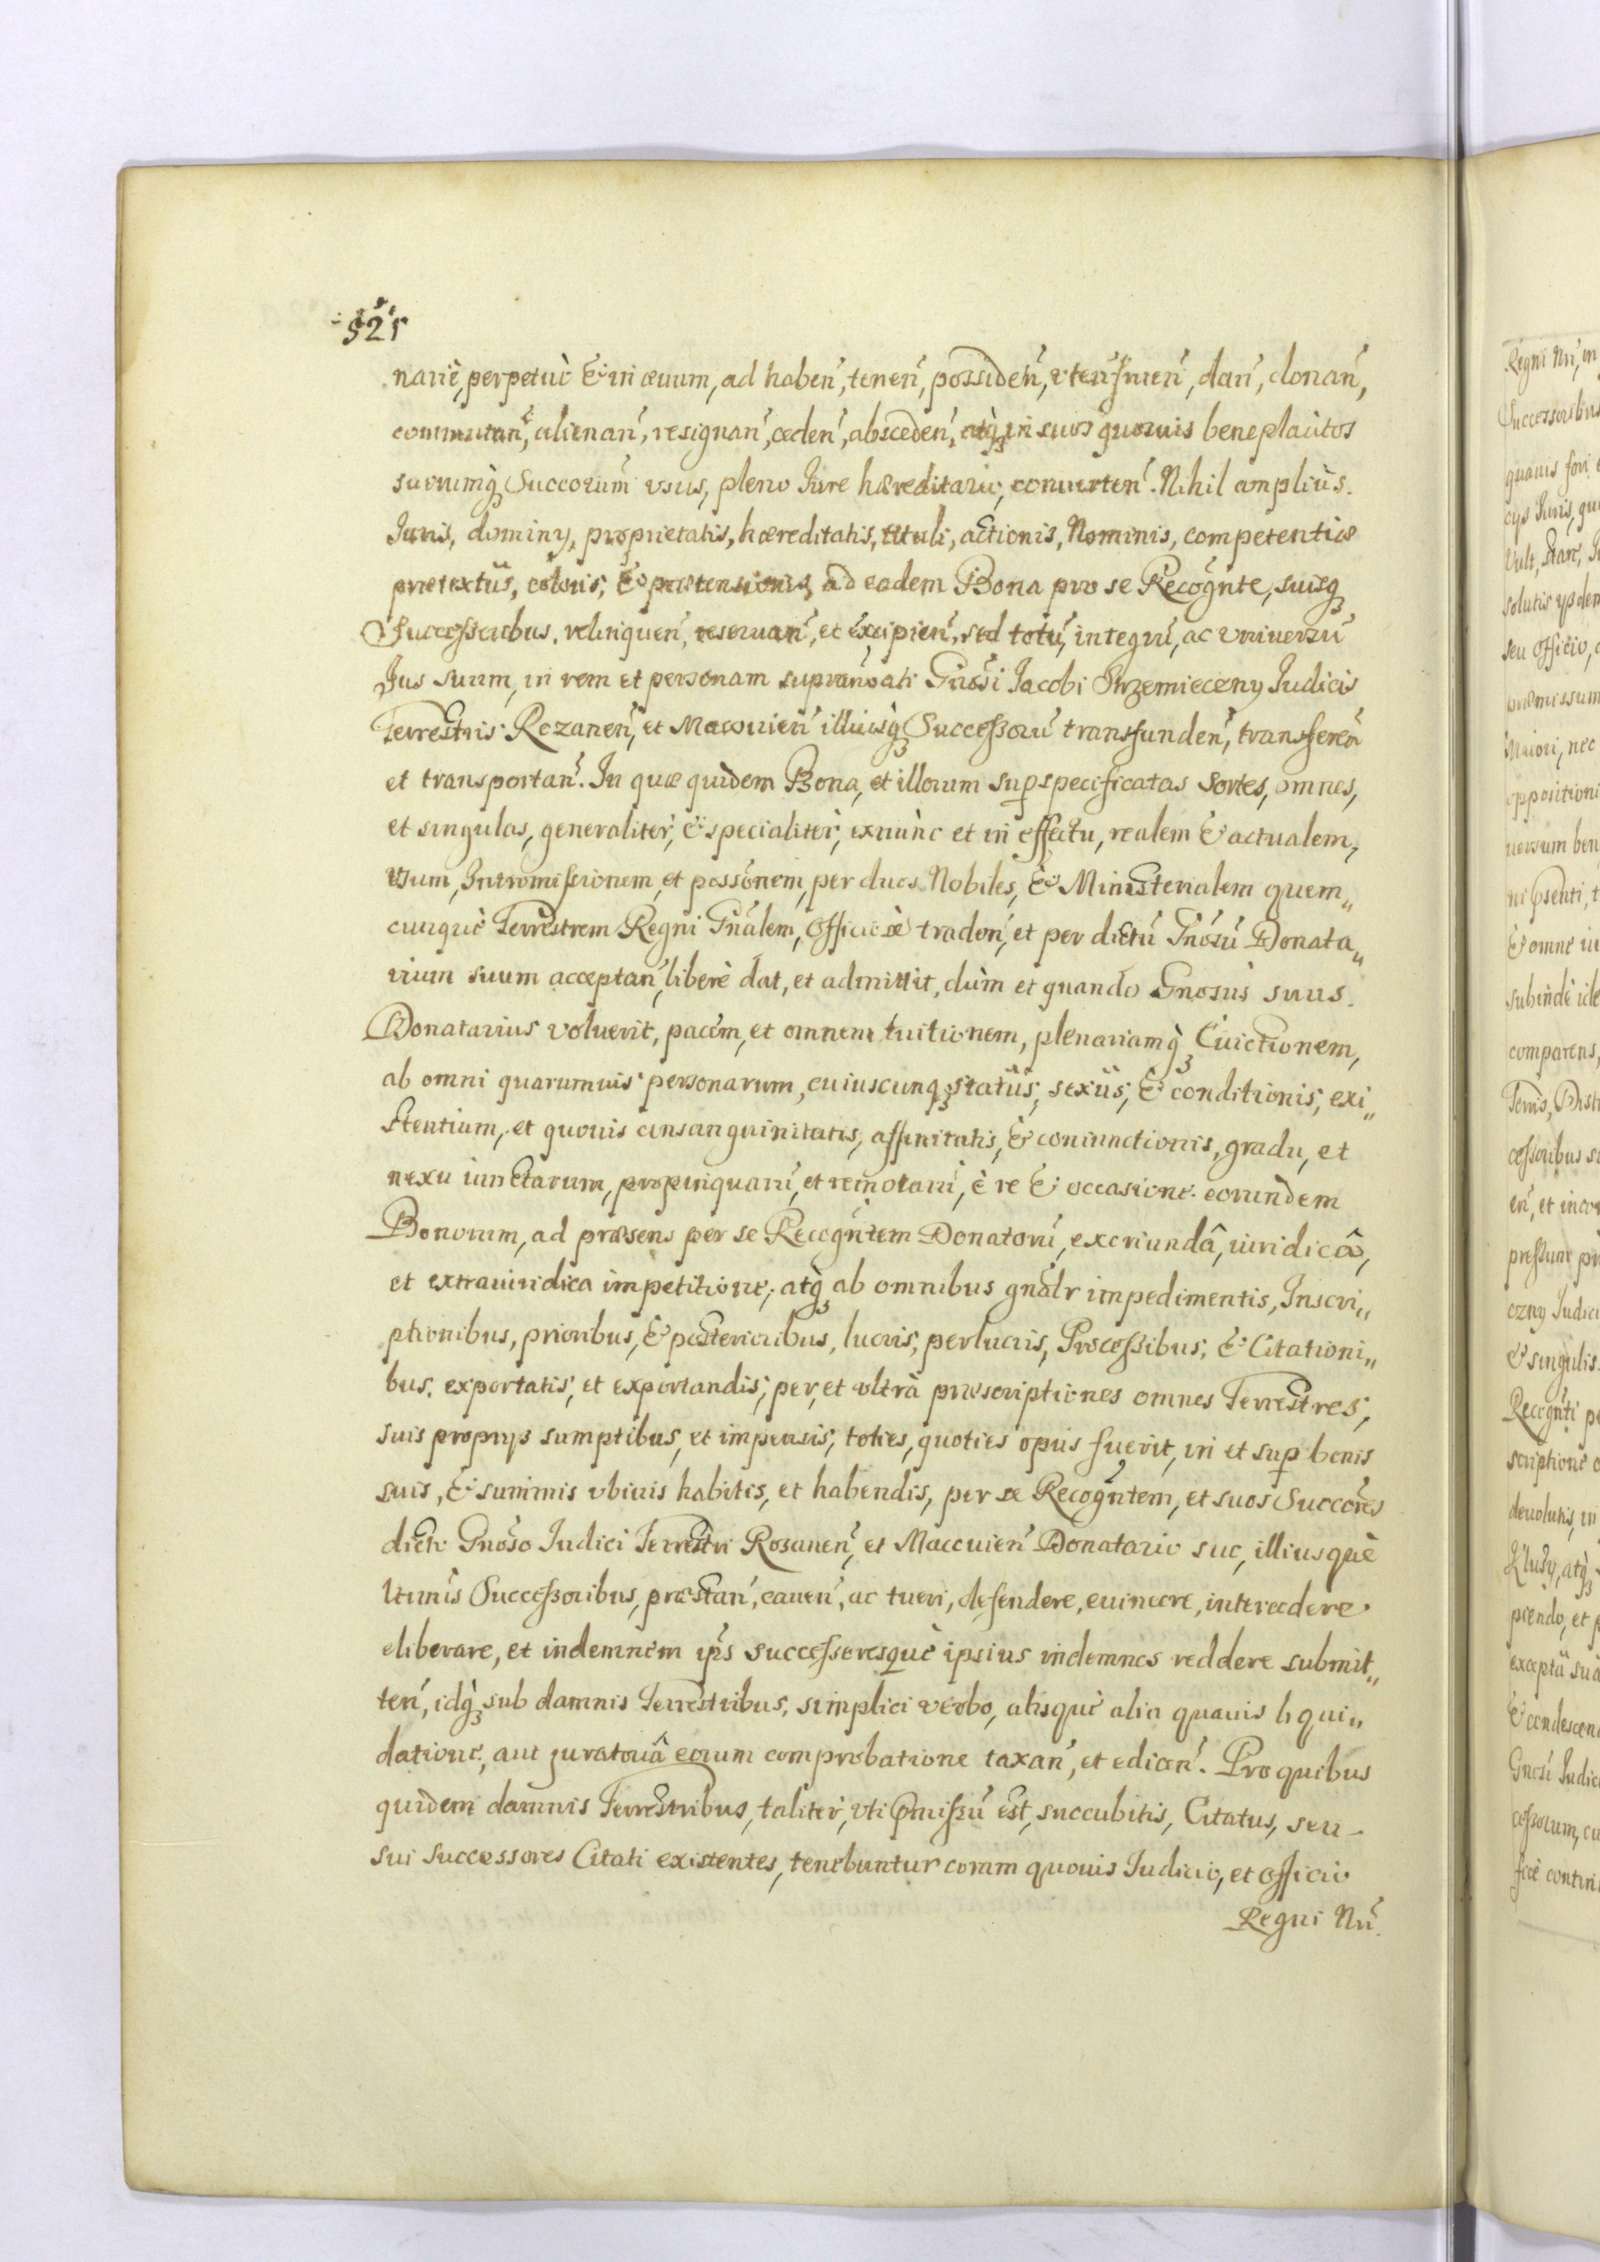 521
narie, perpetuò & in æuum, ad haben̄, tenen̄, possiden̄, vtenfruen̄, dan̄, donan̄,
commutan̄, alienan̄, resignan̄, ceden̄, absceden̄, atq́ꝫ in suos quosuis beneplacitos
suorumq́ꝫ Succorum vsus, pleno Iure hæreditario, conuerten̄. Nihil ampliùs
Iuris, dominy, proprietatis, hæreditatis, tituli, actionis, Nominis, competentiæ
prætextûs, coloris, & prætensionis, ad eadem Bona pro se Recogn̄te, suisqꝫ
Successoribus, relinquen̄, reseruan̄, et excipien̄, sed totū, integrū, ac vniuersū
Jus suum, in rem et personam supranōati Gn̄osi Jacobi Strzemieczny Judicis
Terrestris Rozanen̄, et Macouien̄ illiusq́ꝫ Successorū transfunden̄, transferen̄
et transportan̄. In quæ quidem Bona, et illorum sup̱specificatas Sortes, omnes,
et singulas, generalitèr, & specialitèr, exnùnc et in effectu, realem & actualem,
vsum, Intromissionem, et possōnem, per duos Nobiles, & Ministerialem quem„
cunquè Terrestrem Regni Gn̄alem, Officiosè traden̄, et per dictū Gn̄osū Donata„
rium suum acceptan̄, liberè dat, et admittit, dùm et quando Gnosus suus
Donatarius voluerit, pacem, et omnem tuitionem, plenariamq́ꝫ Euictionem,
ab omni quarumuis personarum, cuiuscunqꝫ statûs, sexûs, & conditionis, exi„
stentium, et quouis consanguinitatis, affinitatis, & coniunctionis, gradu, et
nexu iunctarum, propinquarū, et remotarū, è re & occasione eorundem
Bonorum, ad præsens per se Recogn̄tem Donatorū, exoriundâ, iuridicâ,
et extraiuridica impetitione, atq́ꝫ ab omnibus gn̄alr impedimentis, Inscri„
ptionibus, prioribus, & posterioribus, lucris, perlucris, Processibus, & Citationi„
bus, exportatis, et exportandis, per, et vltrà præscriptiones omnes Terrestres,
suis proprys sumptibus, et impensis, toties, quoties opus fuerit, in et sup̱ bonis
suis, & summis vbiuis habitis, et habendis, per se Recogn̄tem, et suos Succores
dicto Gn̄oso Iudici Terrestri Rosanen̄, et Maccuien̄ Donatario suo, illiusquè
ltimis Successoribus, præstan̄, cauen̄, ac tueri, defendere, euincere, intercedere
eliberare, et indemnem ip̄s successoresquè ipsius indemnes reddere submit„
ten̄, idq́ꝫ sub damnis Terrestribus, simplici verbo, absquè alia quauis liqui„
datione, aut juratoriâ eorum comprobatione taxan̄, et edicen̄. Pro quibus
quidem damnis Terrestribus, talitèr, vti p̄missū est, succubitis, Citatus, seu
sui successores Citati existentes, tenebuntur coram quouis Iudicio, et Officio
Regni Nū